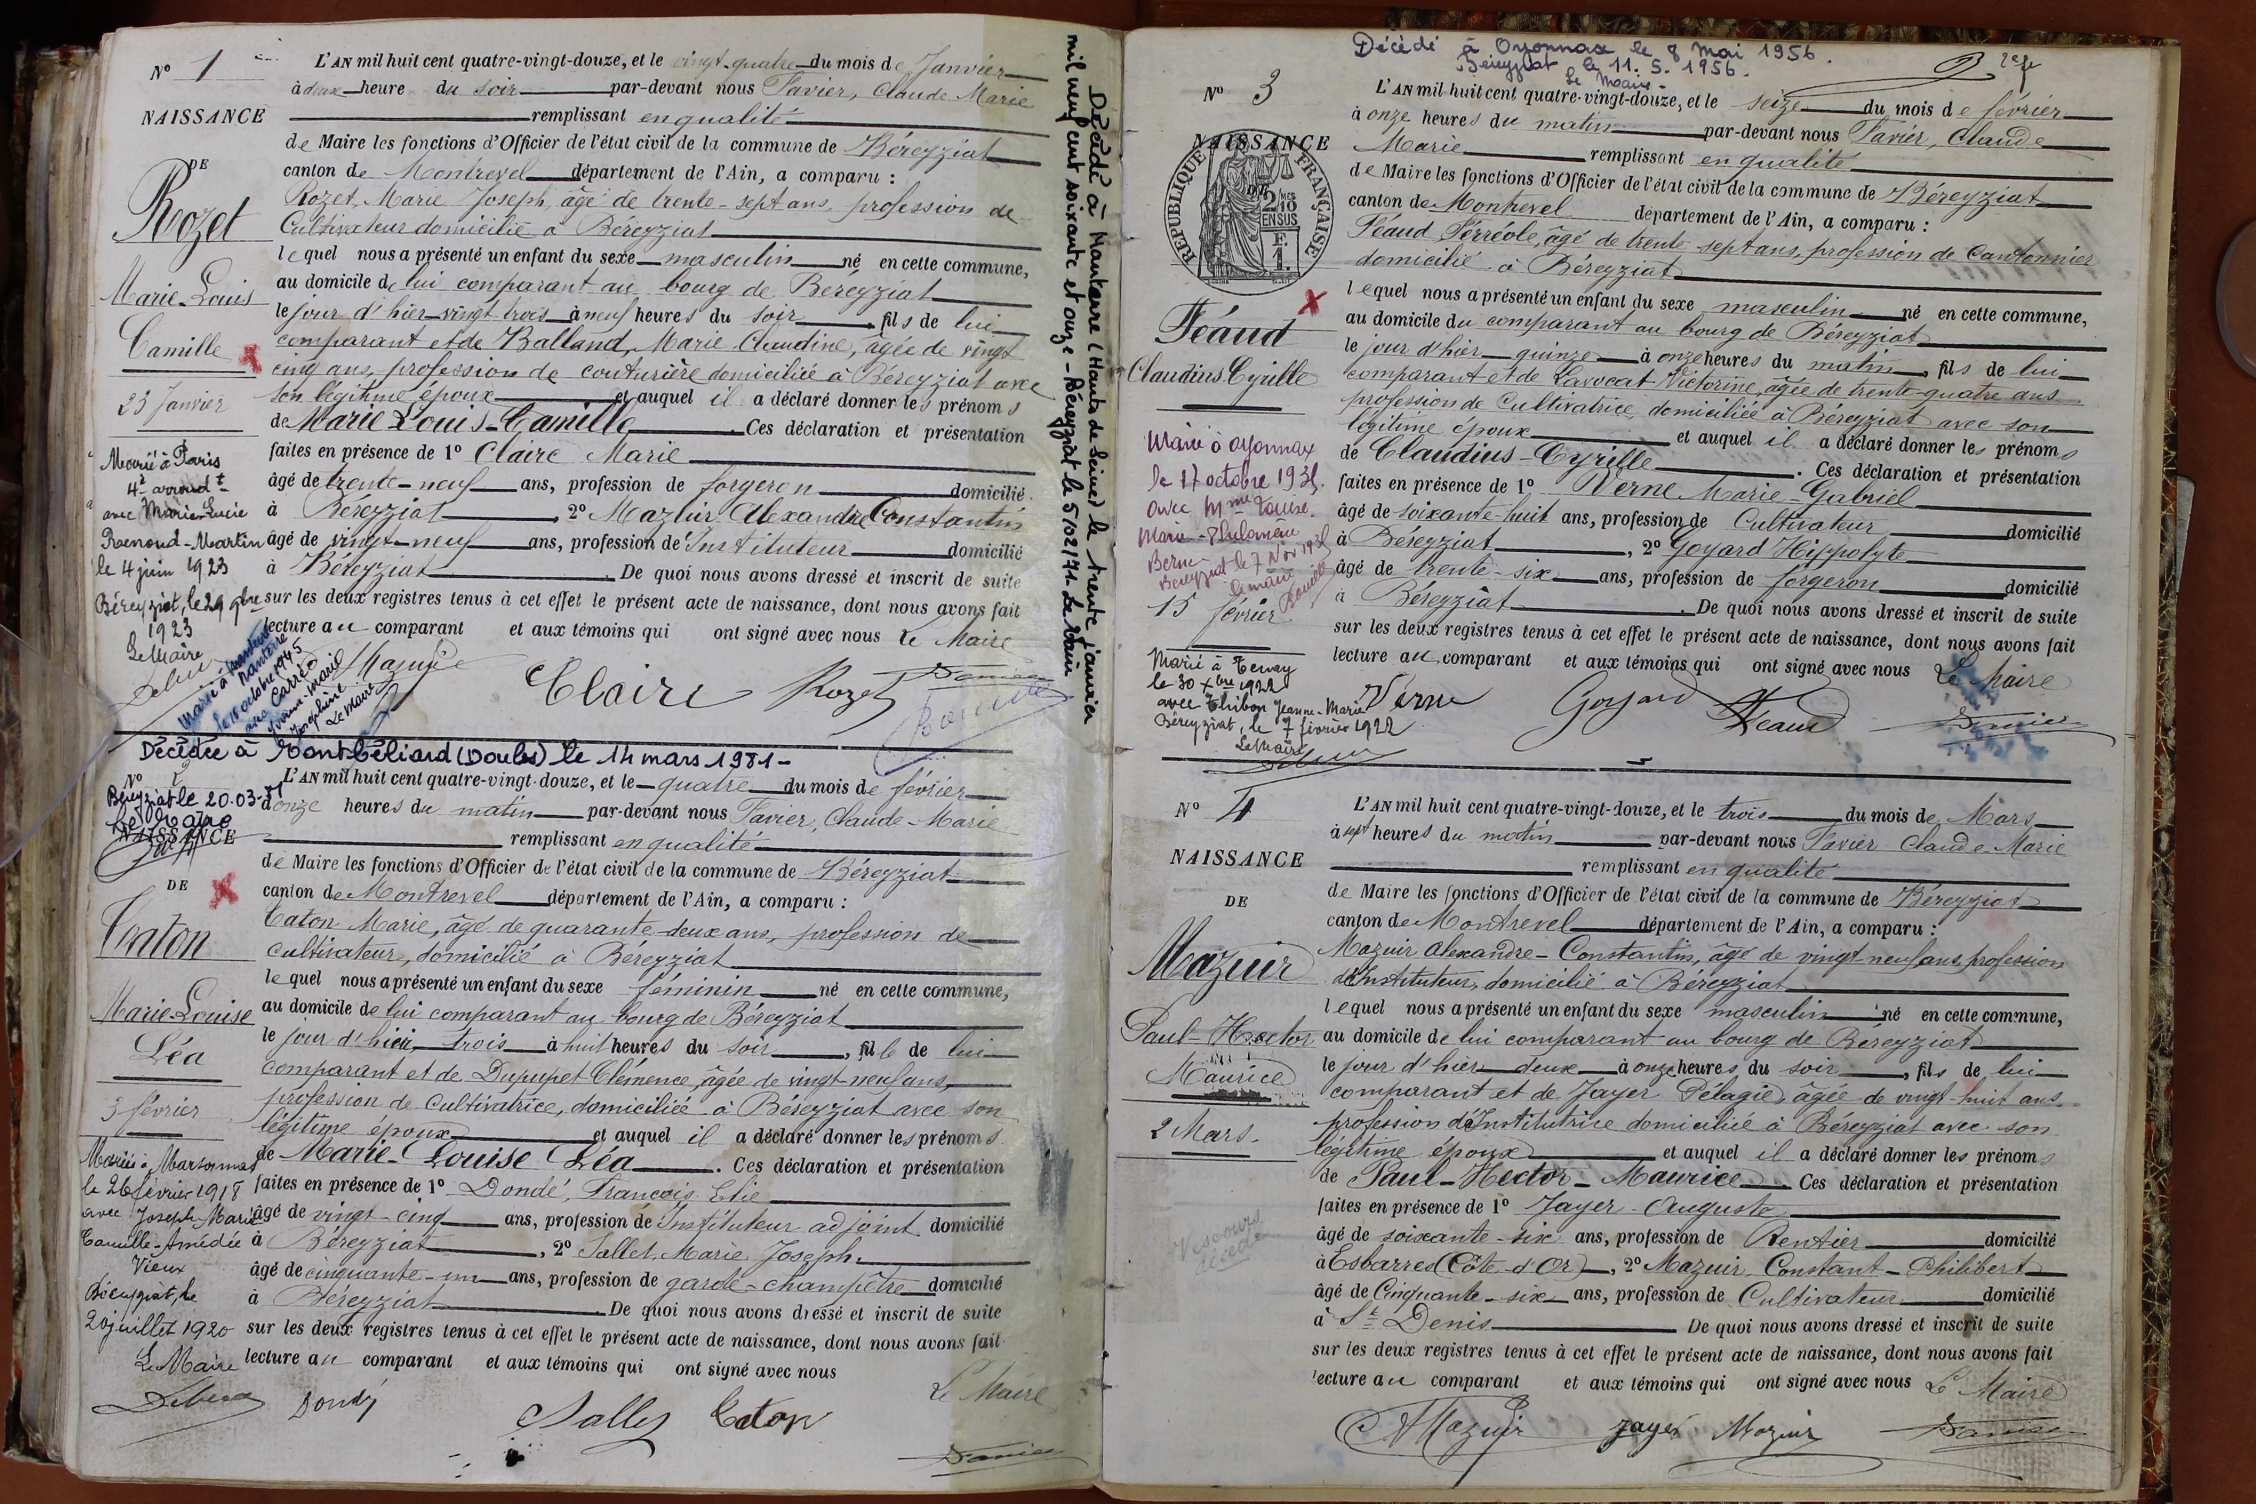 N° 1
NAISSANCE
DE
Rozet
Marie-Louis
Camille
23 Janvier
Marié à Paris
4e arrondt
avec Marie-Lucie
Renoud-Martin
le 4 juin 1923
Béreyziat, le 29 9bre
1923
Le Maire
Marié à Nanterre
Nanterre
le 18 octobre 1945
avec Carré
Yvonne Marie
Joséphine
Le Maire
L'AN mil huit cent quatre-vingt-douze, et le vingt-quatre du mois de Janvier
à deux heure du soir par-devant nous Favier, Claude Marie
remplissant en qualité
de Maire les fonctions d'Officier de l'état civil de la commune de Béreyziat
canton de Montrevel département de l'Ain, a comparu :
Rozet, Marie Joseph, âgé de trente-sept ans, profession de
Cultivateur domicilié à Béreyziat
lequel nous a présenté un enfant du sexe masculin né en cette commune,
au domicile de lui comparant au bourg de Béreyziat
le jour d'hier vingt-trois à neuf heures du soir, fils de lui
comparant et de Balland, Marie Claudine, âgée de vingt
cinq ans, profession de couturière domiciliée à Béreyziat avec
son légitime époux et auquel il a déclaré donner les prénoms
de Marie Louis-Camille. Ces déclaration et présentation
faites en présence de 1° Claire Marie
âgé de trente-neuf ans, profession de forgeron domicilié
à Béreyziat, 2° Mazuir Alexandre Constantin
âgé de vingt-neuf ans, profession d'Instituteur domicilié
à Béreyziat. De quoi nous avons dressé et inscrit de suite
sur les deux registres tenus à cet effet le présent acte de naissance, dont nous avons fait
lecture au comparant et aux témoins qui ont signé avec nous Le Maire
Mazuir Claire Rozet Favier
Décédé à Nanterre (Hauts de Seine) le trente janvier
mil neuf cent soixante et onze - Béreyziat le 5/02/71 Le Maire
Décédée à Montbéliard (Doubs) le 14 mars 1981 -
Béreyziat le 20-03-81
Le Maire
N° 2
NAISSANCE
DE
Caton
Marie-Louise
Léa
3 février
Mariée à Marsonnas
le 26 février 1918
avec Joseph Marie
Camille-Amédée
Vieux
Béreyziat, le
20 juillet 1920
Le Maire
L'AN mil huit cent quatre-vingt-douze, et le quatre du mois de février
à onze heures du matin par-devant nous Favier, Claude-Marie
remplissant en qualité
de Maire les fonctions d'Officier de l'état civil de la commune de Béreyziat
canton de Montrevel département de l'Ain, a comparu :
Caton Marie, âgé de quarante-deux ans, profession de
cultivateur, domicilié à Béreyziat
lequel nous a présenté un enfant du sexe féminin né en cette commune,
au domicile de lui comparant au bourg de Béreyziat
le jour d'hier trois à huit heures du soir, fille de lui
comparant et de Dupupet Clémence, âgée de vingt-neuf ans,
profession de Cultivatrice, domiciliée à Béreyziat avec son
légitime époux et auquel il a déclaré donner les prénoms
de Marie-Louise Léa. Ces déclaration et présentation
faites en présence de 1° Dondé, François Elie
âgé de vingt-cinq ans, profession de Instituteur adjoint domicilié
à Béreyziat, 2° Sallet Marie Joseph
âgé de cinquante-un ans, profession de garde-champêtre domicilié
à Béreyziat. De quoi nous avons dressé et inscrit de suite
sur les deux registres tenus à cet effet le présent acte de naissance, dont nous avons fait
lecture au comparant et aux témoins qui ont signé avec nous
Le Maire
Dondé Sallet Caton
Favier
Décédé à Oyonnax le 8 Mai 1956.
Béreyziat le 11.5.1956.
Le Maire
N° 3
NAISSANCE
DE
RÉPUBLIQUE FRANÇAISE
2/10 EN SUS
F. 1.
Féaud
Claudius Cyrille
Marié à Oyonnax
le 17 octobre 1931.
avec Mme
Marie-Philomène
Berne
Béreyziat le 7 Nov 1931
le maire
15 février
Marié à Tenay
le 30 Xbre 1922
avec Thibon Jeanne-Marie
Béreyziat, le 7 février 1922
Le Maire
L'AN mil huit cent quatre-vingt-douze, et le seize du mois de février
à onze heures du matin par-devant nous Favier, Claude
Marie remplissant en qualité
de Maire les fonctions d'Officier de l'état civil de la commune de Béreyziat
canton de Montrevel département de l'Ain, a comparu :
Féaud Ferréole, âgé de trente-sept ans, profession de Cantonnier
domicilié à Béreyziat
lequel nous a présenté un enfant du sexe masculin né en cette commune,
au domicile du comparant au bourg de Béreyziat
le jour d'hier quinze à onze heures du matin, fils de lui
comparant et de Lavocat Victorine, âgée de trente-quatre ans
profession de Cultivatrice, domiciliée à Béreyziat avec son
légitime époux et auquel il a déclaré donner les prénoms
de Claudius-Cyrille. Ces déclaration et présentation
faites en présence de 1° Verne Marie-Gabriel
âgé de soixante-huit ans, profession de Cultivateur domicilié
à Béreyziat, 2° Goyard Hippolyte
âgé de trente-six ans, profession de forgeron domicilié
à Béreyziat. De quoi nous avons dressé et inscrit de suite
sur les deux registres tenus à cet effet le présent acte de naissance, dont nous avons fait
lecture au comparant et aux témoins qui ont signé avec nous Le Maire
Verne Goyard Féaud Favier
N° 4
NAISSANCE
DE
Mazuir
Paul-Hector
Maurice
2 Mars.
L'AN mil huit cent quatre-vingt-douze, et le trois du mois de Mars
à sept heures du matin par-devant nous Favier Claude Marie
remplissant en qualité
de Maire les fonctions d'Officier de l'état civil de la commune de Béreyziat
canton de Montrevel département de l'Ain, a comparu :
Mazuir Alexandre-Constantin, âgé de vingt neuf ans, profession
d'Instituteur, domicilié à Béreyziat
lequel nous a présenté un enfant du sexe masculin né en cette commune,
au domicile de lui comparant au bourg de Béreyziat
le jour d'hier deux à onze heures du soir, fils de lui
comparant et de Jayer Pélagie, âgée de vingt-huit ans
profession d'Institutrice domicilié à Béreyziat avec son
légitime époux et auquel il a déclaré donner les prénoms
de Paul-Hector-Maurice. Ces déclaration et présentation
faites en présence de 1° Jayer Auguste
âgé de soixante-six ans, profession de Rentier domicilié
à Esbarres (Côte-d'Or), 2° Mazuir Constant-Philibert
âgé de Cinquante-six ans, profession de Cultivateur domicilié
à St Denis De quoi nous avons dressé et inscrit de suite
sur les deux registres tenus à cet effet le présent acte de naissance, dont nous avons fait
lecture au comparant et aux témoins qui ont signé avec nous Le Maire
Mazuir Jayer Mazuir Favier